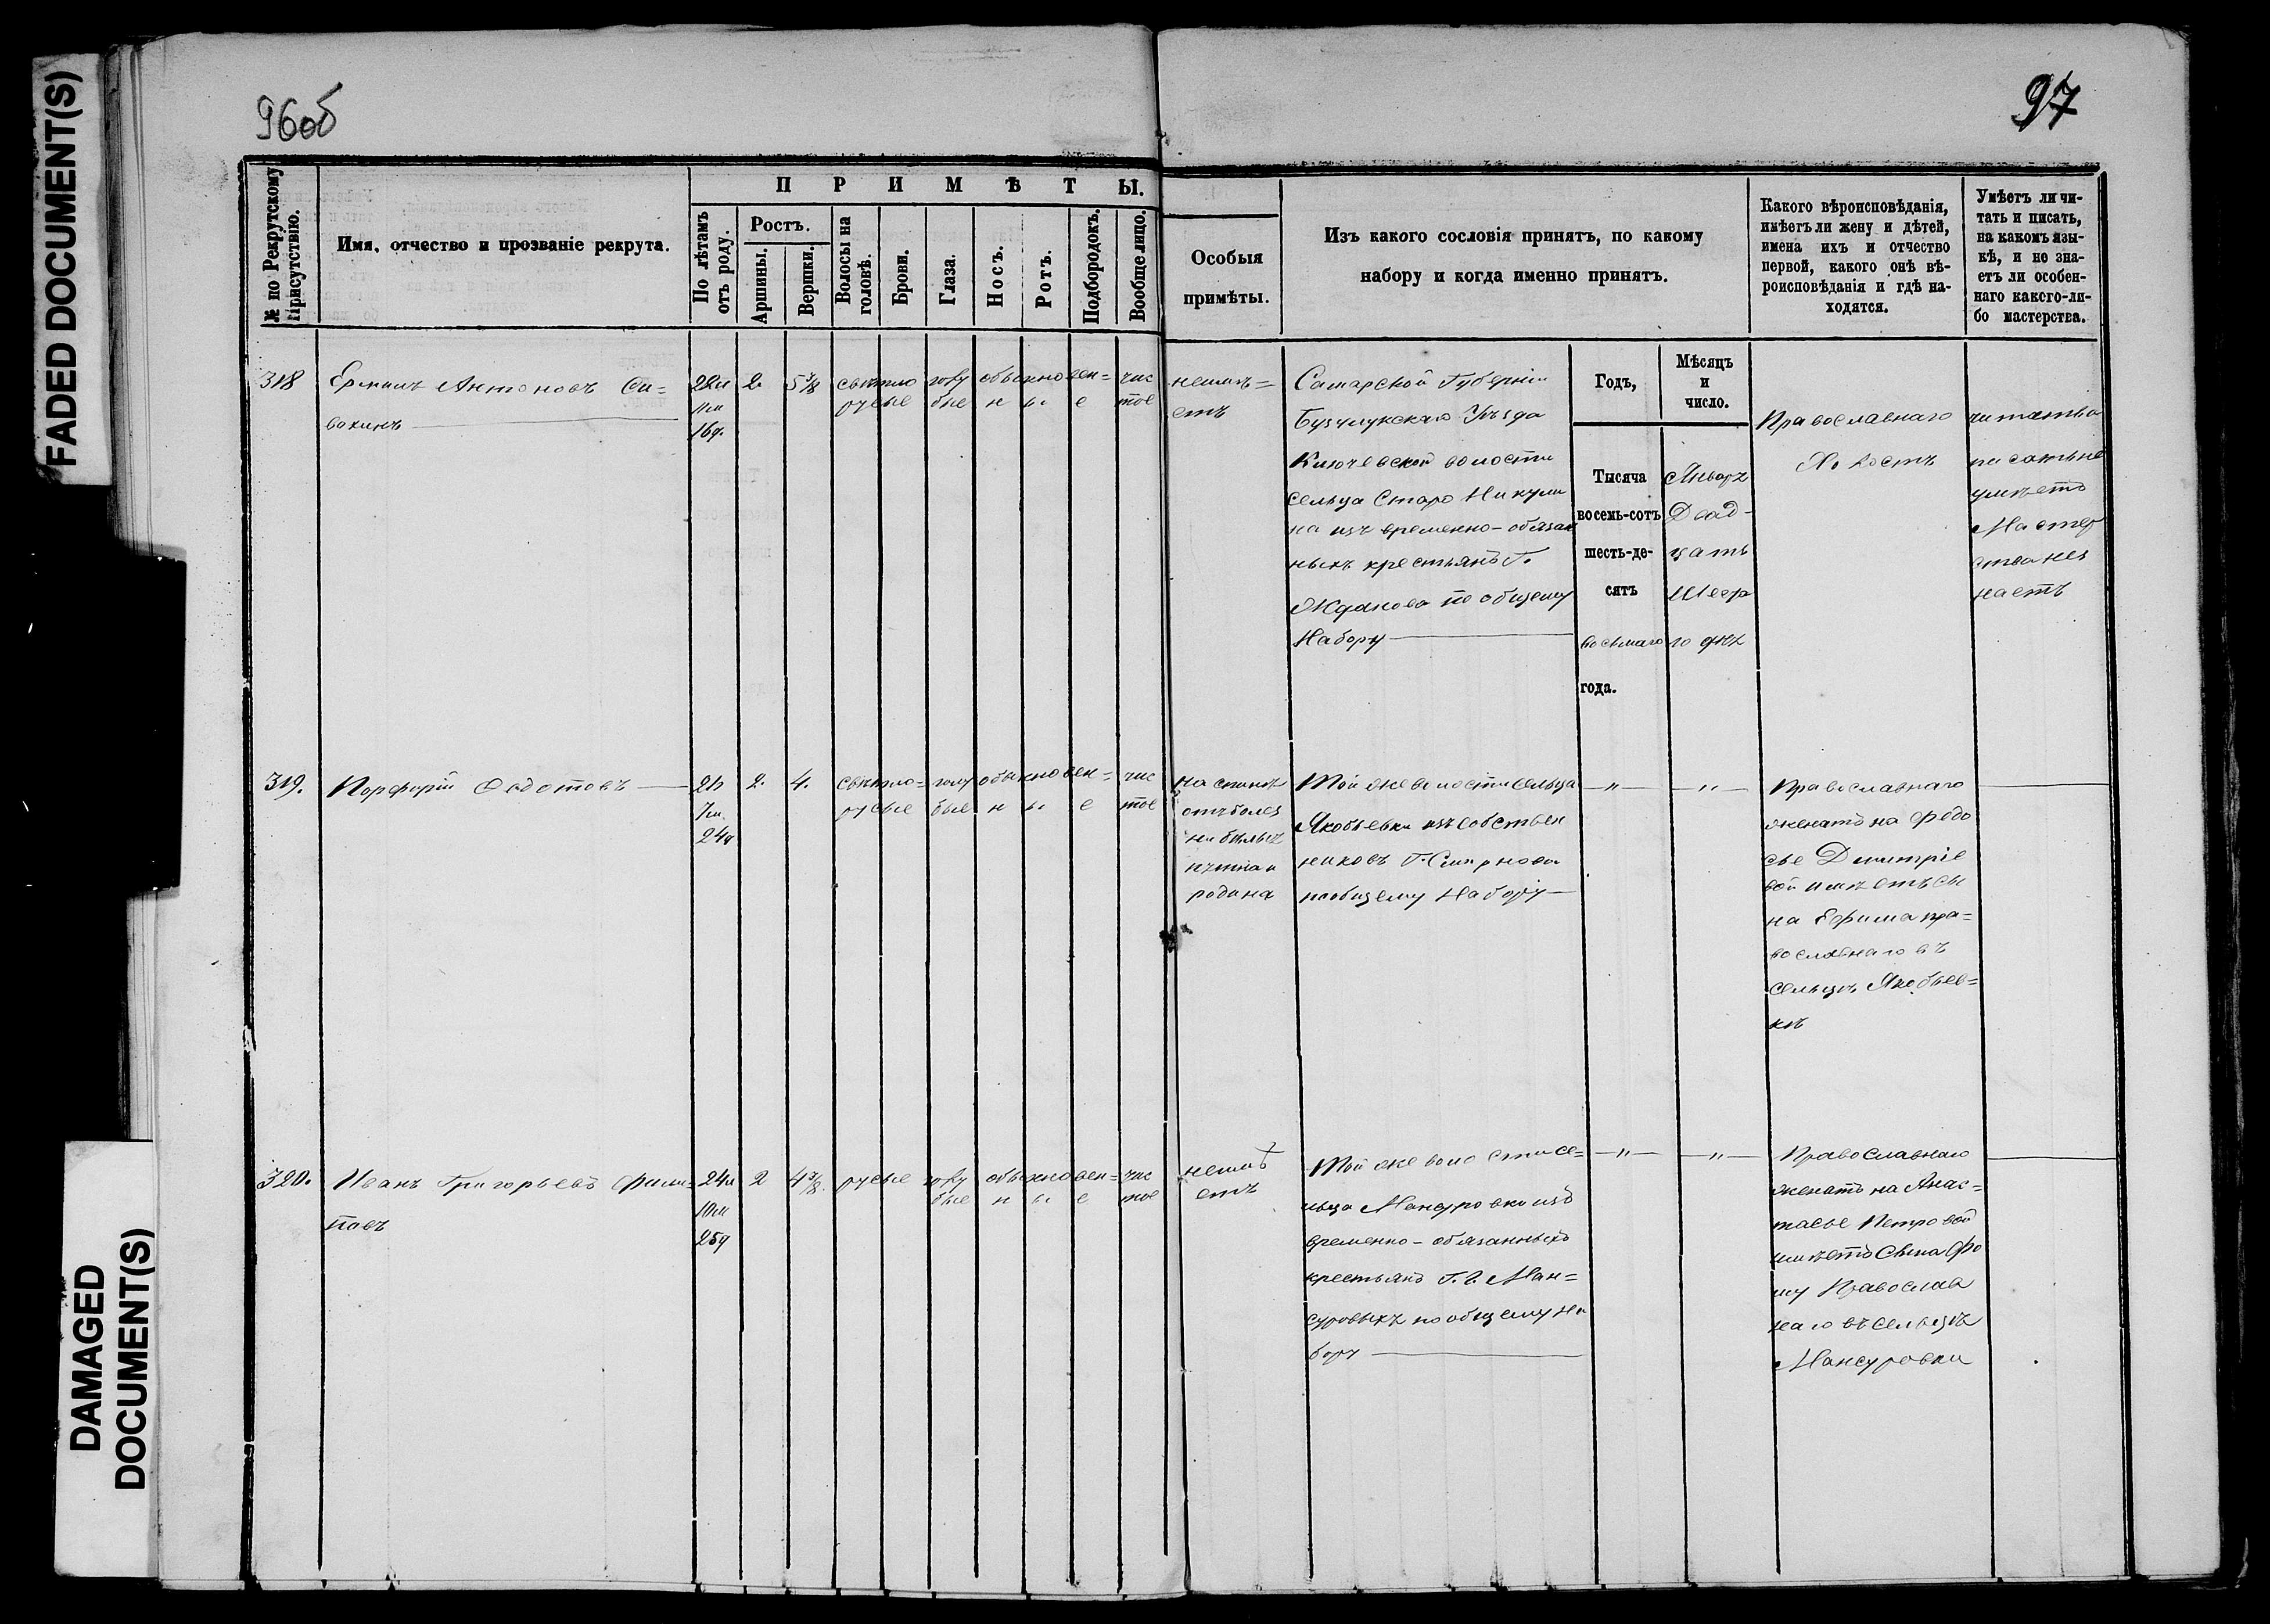 FADED DOCUMENT(S)
DAMAGED
DOCUMENT(S)
96об
97
№ по Рекрутскому
Присутствію.
Имя, отчество и прозваніе рекрута.
ПРИМѢТЫ.
По лѣтамъ
отъ роду.
Ростъ.
Аршины.
Вершки.
Волосы на
головѣ.
Брови.
Глаза.
Носъ.
Ротъ.
Подбородокъ.
Вообще лицо.
Особыя
примѣты.
Изъ какого сословія принятъ, по какому
набору и когда именно принятъ.
Какого вѣроисповѣданія,
имѣетъ ли жену и дѣтей,
имена ихъ и отчество
первой, какого онѣ вѣ-
роисповѣданія и гдѣ на-
ходятся.
Умѣетъ ли чи-
тать и писать,
на какомъ язы-
кѣ, и не зна-
етъ ли особен-
наго какого-ли-
бо мастерства.
318
Ермилъ Антоновъ Си=
вакинъ
22л
11м
16д.
2
5⅞
свѣтло
русые
голу
бые
обыкновен=
н ы е
чис
тое
неимѣ=
етъ
Самарской Губерніи
Бузулукскаго Уѣзда
Ключевской волости
сельца Старо Никули
на изъ временно-обязан
ныхъ крестьянъ Г.
Жданова по общему
Набору
Годъ,
Тысяча
восемь-сотъ
шесть-де-
сятъ
восьмаго
года.
Мѣсяцъ
и
число.
Января
Двад-
цать
Шестa
го дня
Православнаго
Холостъ
читать и
писать не
умѣетъ
Мастер
ства нез
наетъ
319.
Порфирій Федотовъ
21л
7м.
24д
2.
4.
свѣтло=
русые
голу
бые
обыкновен=
н ы е
чис
тое
на спинѣ
отъ болез
ни бѣлыя
пятна и
родина
Той же волости сельца
Якобьевки изъ собствен
никовъ Г. Смирнова
пообщему Набору
— " —
— " —
Православнаго
женатъ на Федо
сье Дмитріе
вой имѣетъ сы
на Ефима пра=
вославнаго въ
сельцѣ Якобьев=
кѣ
320.
Иванъ Григорьевъ Фили=
повъ
24л
10м
25д
2
4⅞.
русые
голу
бые
обыкновен=
н ы е
чис
тое
неимѣ
етъ
Той же волости се=
льца Мансуровки изъ
временно-обязанныхъ
крестьянъ Г. Г. Ман=
суровыхъ по общему на
бору
— " —
— " —
Православнаго
женатъ на Анас=
тасье Петровой
имѣетъ Сына Фо
му Православ
наго въ сельцѣ
Мансуровки